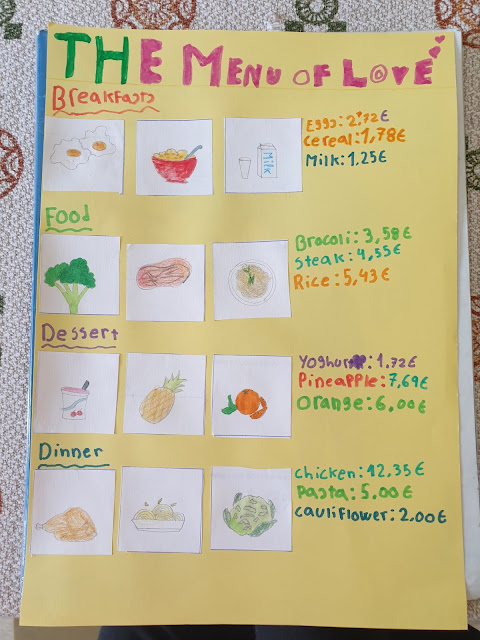 THE MENU OF LOVE
Breakfasts
Eggs: 2.72 €
Cereal: 1,78€
Milk: 1.25€
Milk
Food
Brocoli: 3,58€
Steak: 4,55€
Rice: 5,43€
Dessert
Yoghurt: 1.72€
Pineapple: 7,69€
Orange: 6,00€
Dinner
chicken: 12,35€
Pasta: 5.00€
cauliflower: 2.00€